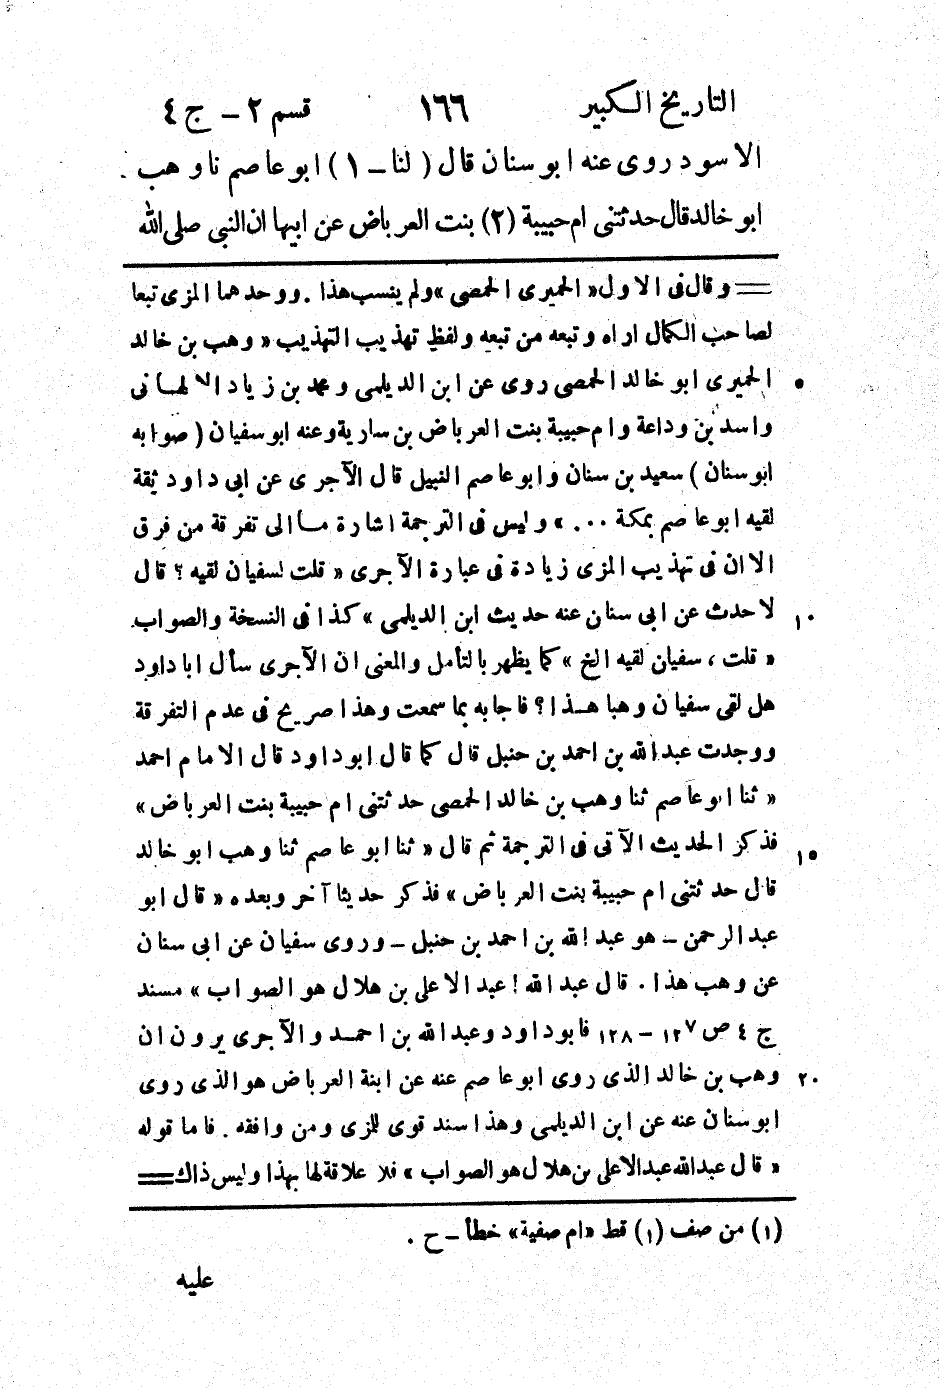 التاريخ الكبير ١٦٦ قسم ٢ – ج ٤
الاسود روى عنه ابو سنان قال ( لنا – ١ ) ابو عاصم نا وهب
ابو خالد قال حدثتنى ام حبيبة (٢) بنت العرباض عن ابيها ان النبى صلى الله
= وقال فى الاول « الحميرى الحمصى » ولم ينسب هذا . ووحدهما المزى تبعا
لصاحب الكمال اراه وتبعه من تبعه ولفظ تهذيب التهذيب « وهب بن خالد
الحميرى ابو خالد الحمصى روى عن ابن الديلمى ومحمد بن زياد الالهانى
واسد بن وداعة وام حبيبة بنت العرباض بن سارية وعنه ابو سفيان ( صوابه
ابو سنان ) سعيد بن سنان وابو عاصم النبيل قال الآجرى عن ابى داود ثقة
لقيه ابو عاصم بمكة ... » وليس فى الترجمة اشارة ما الى تفرقة من فرق
الا ان فى تهذيب المزى زيادة فى عبارة الآجرى « قلت لسفيان لقيه ؟ قال
١٠ لا حدث عن ابى سنان عنه حديث ابن الديلمى » كذا فى النسخة والصواب
« قلت ، سفيان لقيه الخ » كما يظهر بالتأمل والمعنى ان الآجرى سأل ابا داود
هل لقى سفيان وهبا هذا ؟ فاجابه بما سمعت وهذا صريح فى عدم التفرقة
ووجدت عبد الله بن احمد بن حنبل قال كما قال ابو داود قال الامام احمد
« ثنا ابو عاصم ثنا وهب بن خالد الحمصى حدثتنى ام حبيبة بنت العرباض »
١٥ فذكر الحديث الآتى فى الترجمة ثم قال « ثنا ابو عاصم ثنا وهب ابو خالد
قال حدثتنى ام حبيبة بنت العرباض » فذكر حديثا آخر وبعده « قال ابو
عبد الرحمن – هو عبد الله بن احمد بن حنبل – وروى سفيان عن ابى سنان
عن وهب هذا . قال عبد الله ! عبد الاعلى بن هلال هو الصواب » مسند
ج ٤ ص ١٢٧ – ١٢٨ فابو داود وعبد الله بن احمد والآجرى يرون ان
٢٠ وهب بن خالد الذى روى ابو عاصم عنه عن ابنة العرباض هو الذى روى
ابو سنان عنه عن ابن الديلمى وهذا سند قوى للمزى ومن وافقه . فاما قوله
« قال عبد الله عبد الاعلى بن هلال هو الصواب » فلا علاقة لها بهذا وليس ذاك =
(١) من صف (١) قط « ام صفية » خطأ – ح .
عليه